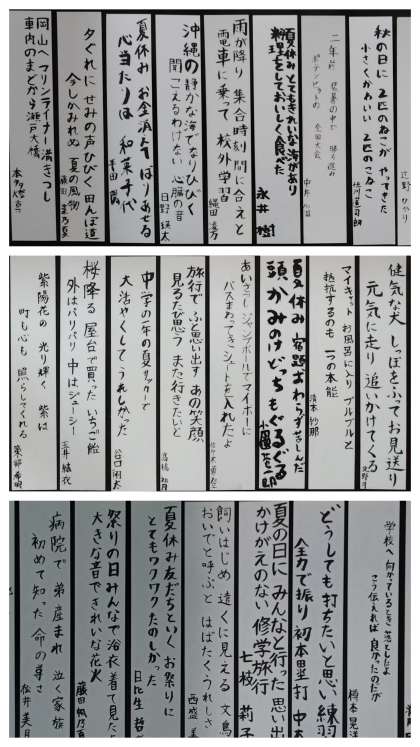 秋の日に 2匹のねこが やってきた
小さくかわいい 2匹のこねこ
二年前
夏休み とてもきれいな 海があり
料理をしておいしく食べた
永井 樹
雨が降り 集合時刻 間に合えと
電車に乗って 校外学習
縄田
沖縄の 静かな海で なりひびく
聞こえるわけない 心臓の音
日野 瑛太
夏休み お金消えて ほりあせる
心当たりは 和菓子代
夕ぐれに せみの声ひびく 田んぼ道
今しかみれぬ 夏の風物
岡山へ マリンライナー 満きつし
車内のまどから 瀬戸大橋
健気な犬 しっぽをふって お見送り
元気に走り 追いかけてくる
マイキャット お風呂に入り ブルブルと
抵抗するのも 一つの本能
清本 紗那
夏休み 宿題おわらず 苦しんだ
頭かみのけ どっちもぐるぐる
あいさつし ジャンプボールで マイボーに
パスまわってきて シュートを入れたよ
旅行で ふと思い出す あの笑顔
見るたび思う また行きたいと
高橋
中学の 一年の夏 サッカーで
大活やくして うれしかった
谷口 翔太
桜降る 屋台で買った いちご飴
外はパリパリ 中はジューシー
玉井 結衣
紫陽花の 光り輝く 紫は
町も心も 照らしてくれる
学校へ 向かっているとき 落としたよ
こう伝えれば 良かったのだが
樽本 晃洋
どうしても 打ちたいと思い 練習
全力で振り 初本塁打
夏の日に みんなと行った 思い出
かけがえのない 修学旅行
七枝 莉子
飼いはじめ 遠くに見える 文鳥
おいでと呼ぶと はばたくうれしさ
西盛
夏休み 友だちといく お祭りに
とてもワクワク たのしかった
日比生
祭りの日 みんなで浴衣 着て見た
大きな音で きれいな花火
藤田 帆乃
病院で 弟産まれ 泣く家族
初めて知った 命の尊さ
佐井 美